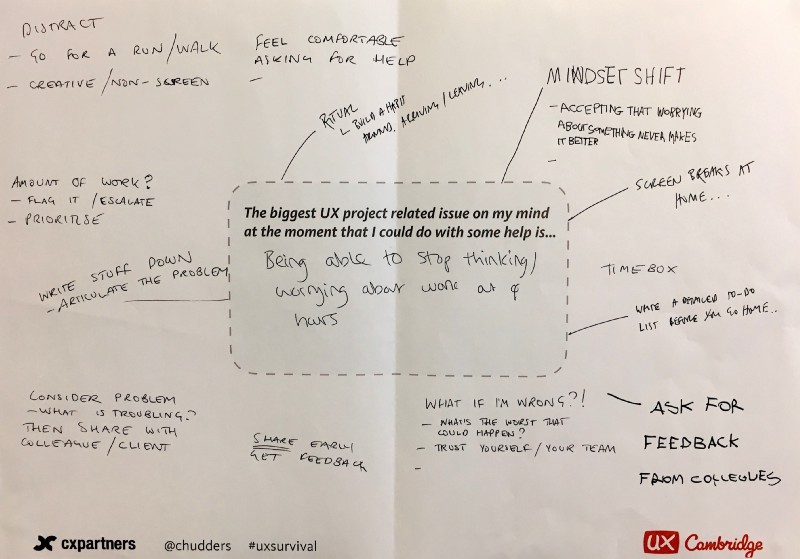 DISTRACT
- GO FOR A RUN/WALK
- CREATIVE/NON-SCREEN
FEEL COMFORTABLE
ASKING FOR HELP
-
RITUAL
↳ BUILD A HABIT
AROUND ARRIVING/LEAVING...
MINDSET SHIFT
- ACCEPTING THAT WORRYING
ABOUT SOMETHING NEVER MAKES
IT BETTER
-
AMOUNT OF WORK?
- FLAG IT/ESCALATE
- PRIORITISE
SCREEN BREAKS AT
HOME...
The biggest UX project related issue on my mind
at the moment that I could do with some help is...
Being able to stop thinking/
worrying about work at
hours
WRITE STUFF DOWN
- ARTICULATE THE PROBLEM
TIMEBOX
WRITE A DETAILED TO-DO
LIST BEFORE YOU GO HOME..
CONSIDER PROBLEM
- WHAT IS TROUBLING?
THEN SHARE WITH
COLLEAGUE/CLIENT
SHARE EARLY
GET FEEDBACK
WHAT IF I'M WRONG?!
- WHAT'S THE WORST THAT
COULD HAPPEN?
- TRUST YOURSELF/YOUR TEAM
-
ASK FOR
FEEDBACK
FROM COLLEGUES
cxpartners @chudders #uxsurvival
UX Cambridge